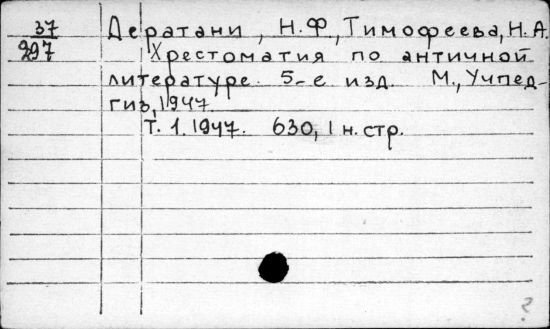 37 Дератани, Н.Ф., Тимофеева, Н.А.
297 Хрестоматия по античной
литературе. 5-е изд. М., Учпед-
гиз, 1947.
Т. 1. 1947. 630, 1 н. стр.
?